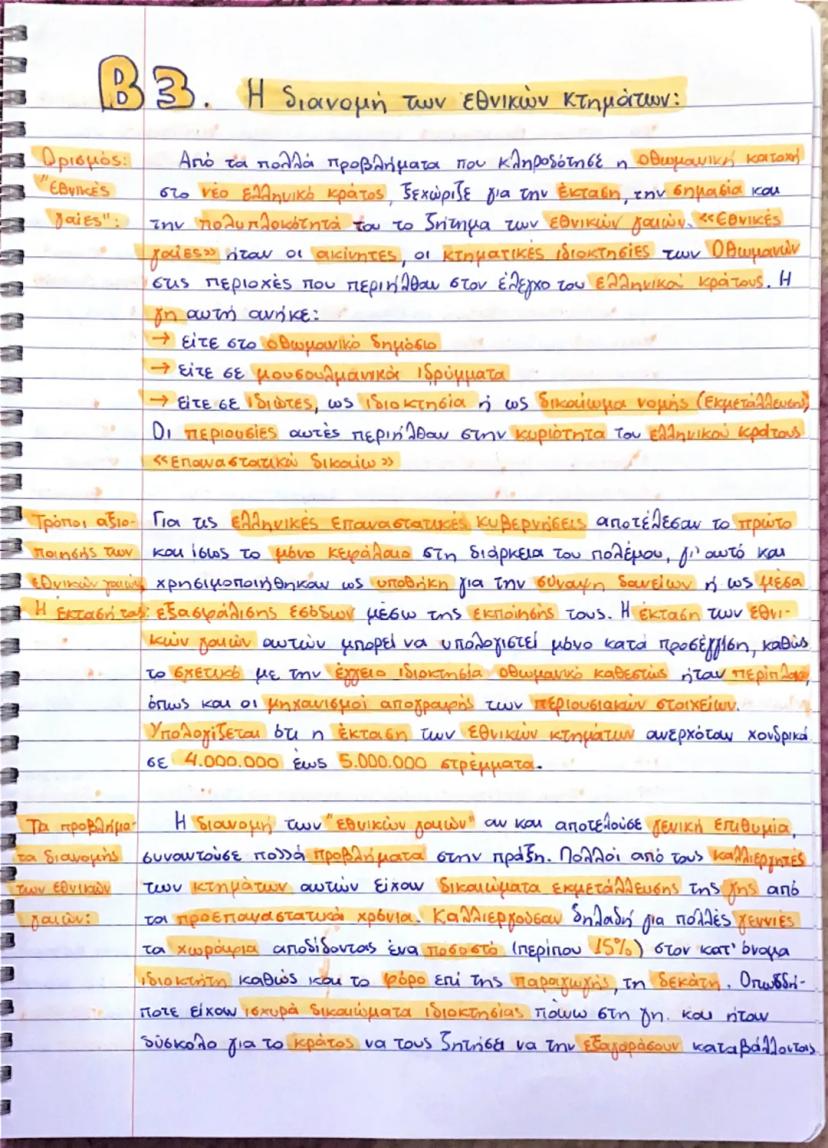 Β3. Η διανομή των εθνικών κτημάτων:
Ορισμός: Από τα πολλά προβλήματα που κληροδότησε η οθωμανική κατοχή
"Εθνικές στο νέο ελληνικό κράτος, ξεχώριζε για την έκταση, την σημασία και
γαίες": την πολυπλοκότητά του το ζήτημα των εθνικών γαιών. «Εθνικές
γαίες» ήταν οι ακίνητες, οι κτηματικές ιδιοκτησίες των Οθωμανών
στις περιοχές που περιήλθαν στον έλεγχο του ελληνικού κράτους. Η
γη αυτή ανήκε:
→ είτε στο οθωμανικό δημόσιο
→ είτε σε μουσουλμανικά ιδρύματα
→ είτε σε ιδιώτες, ως ιδιοκτησία ή ως δικαίωμα νομής (εκμετάλλευσης)
Οι περιουσίες αυτές περιήλθαν στην κυριότητα του ελληνικού κράτους
«επαναστατικώ δικαίω»
Τρόποι αξιο- Για τις ελληνικές επαναστατικές κυβερνήσεις αποτέλεσαν το πρώτο
ποίησης των και ίσως το μόνο κεφάλαιο στη διάρκεια του πολέμου, γι' αυτό και
εθνικών γαιών χρησιμοποιήθηκαν ως υποθήκη για την σύναψη δανείων ή ως μέσα
Η έκτασή τους: εξασφάλισης εσόδων μέσω της εκποίησής τους. Η έκταση των εθνι-
κών γαιών αυτών μπορεί να υπολογιστεί μόνο κατά προσέγγιση, καθώς
το σχετικό με την έγγειο ιδιοκτησία οθωμανικό καθεστώς ήταν περίπλοκο,
όπως και οι μηχανισμοί απογραφής των περιουσιακών στοιχείων.
Υπολογίζεται ότι η έκταση των εθνικών κτημάτων ανερχόταν χονδρικά
σε 4.000.000 έως 5.000.000 στρέμματα.
Τα προβλήμα- Η διανομή των "εθνικών γαιών" αν και αποτελούσε γενική επιθυμία,
τα διανομής συναντούσε πολλά προβλήματα στην πράξη. Πολλοί από τους καλλιεργητές
των εθνικών των κτημάτων αυτών είχαν δικαιώματα εκμετάλλευσης της γης από
γαιών: τα προεπαναστατικά χρόνια. Καλλιεργούσαν δηλαδή για πολλές γεννιές
τα χωράφια αποδίδοντας ένα ποσοστό (περίπου 15%) στον κατ' όνομα
ιδιοκτήτη καθώς και το φόρο επί της παραγωγής, τη δεκάτη. Οπωσδή-
ποτε είχαν ισχυρά δικαιώματα ιδιοκτησίας πάνω στη γη και ήταν
δύσκολο για το κράτος να τους ζητήσει να την εξαγοράσουν καταβάλλοντας